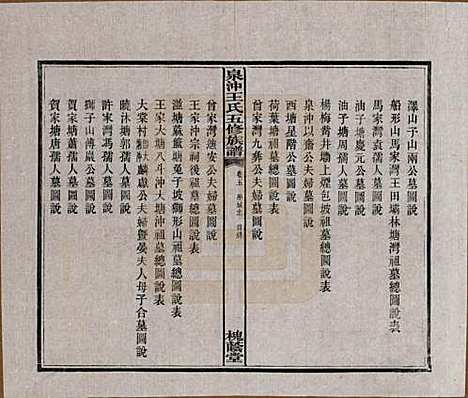 澤山子山兩公墓圖說
船形山馬家灣王田壩林塘灣祖墓總圖說表
馬家灣袁孺人墓圖說
油子塘慶元公墓圖說
油子塘周孺人墓圖說
楊梅舊井坳上煙包坡祖墓總圖說表
泉沖以齋公夫婦墓圖說
西塘星階公墓圖說
荷葉塘祖墓總圖說表
曾家灣九彝公夫婦墓圖說
泉沖王氏五修族譜
卷五
槐蔭堂
曾家灣遠安公夫婦墓圖說
王家沖宗祠後祖墓總圖說表
滋塘蕨藍塘兔子坡獅形山祖墓總圖說表
王家大塘八斗沖大塘沖祖墓總圖說表
大棠村麟獻公夫婦暨晏夫人母子合墓圖說
曉沐塘郭孺人墓圖說
許家灣馮孺人墓圖說
獅子山溥嵐公墓圖說
賀家塘蕭孺人墓圖說
賀家塘唐孺人墓圖說